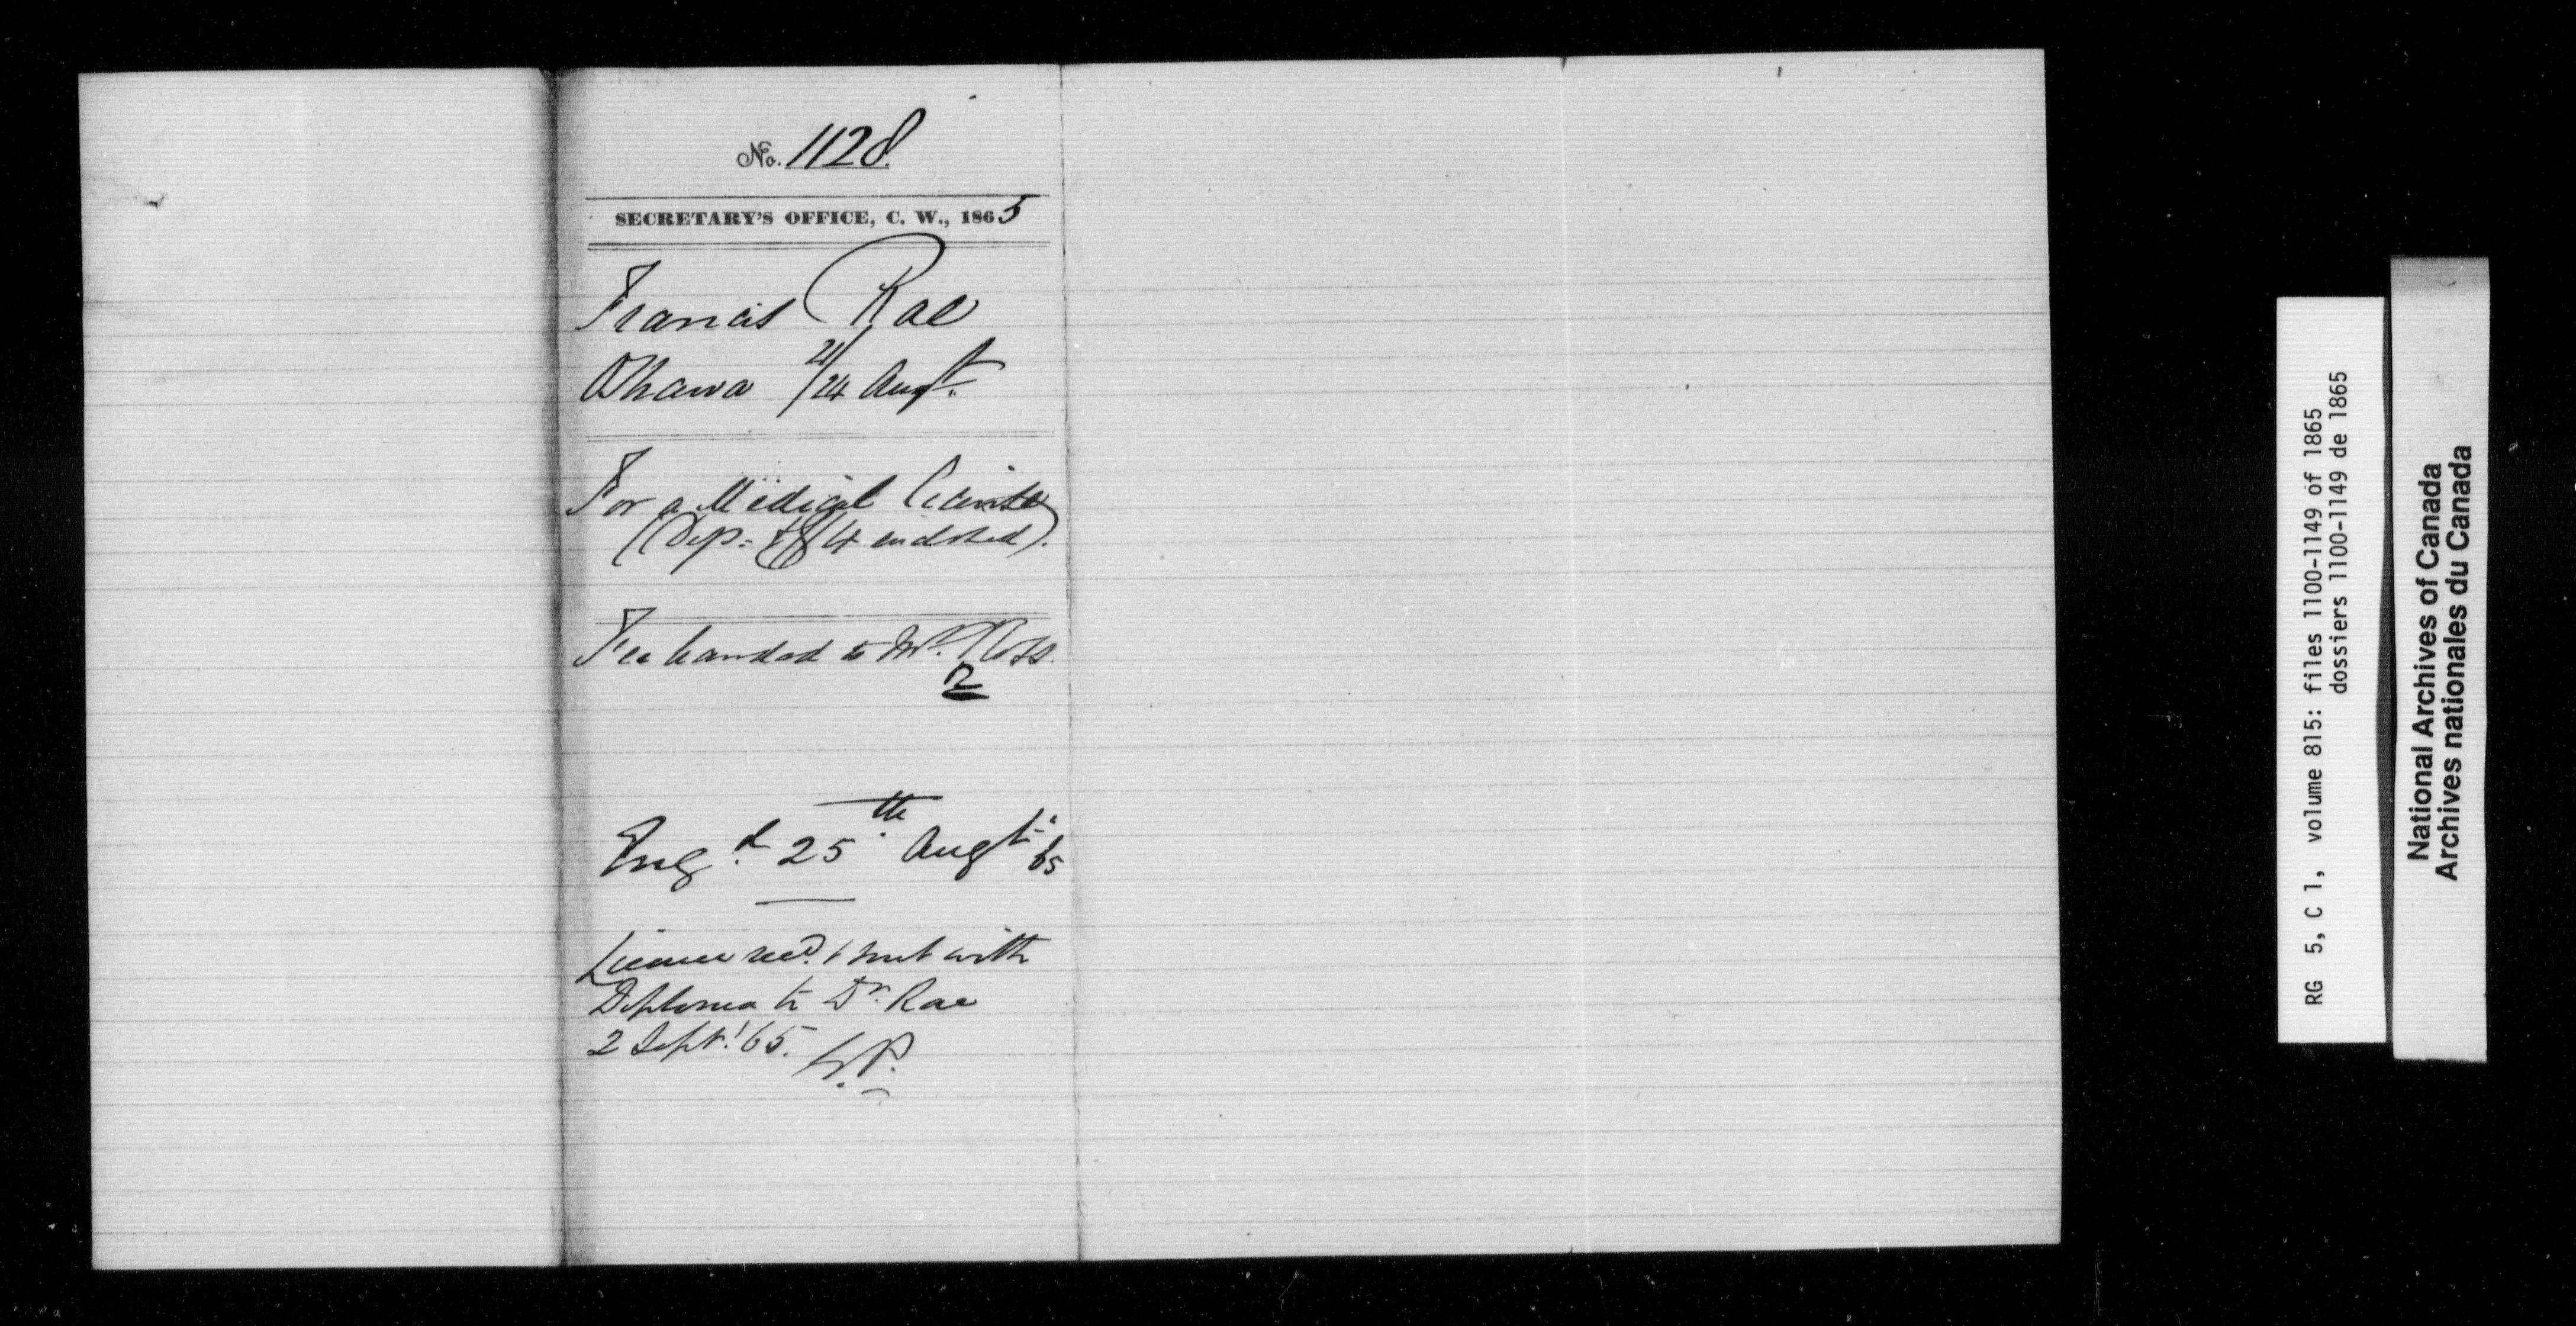 No. 1128.
SECRETARY'S OFFICE, C. W., 1865
Francis Rae
Oshawa 21/24 Augt.
For a Medical License
(Dip: & $4 enclosed).
Fee handed to Mr. Ross.
Engd. 25th Augt. 65
License recd. & sent with
Diploma to Dr. Rae
2 Sept. '65.
RG 5, C 1, volume 815: files 1100-1149 of 1865
dossiers 1100-1149 de 1865
National Archives of Canada
Archives nationales du Canada